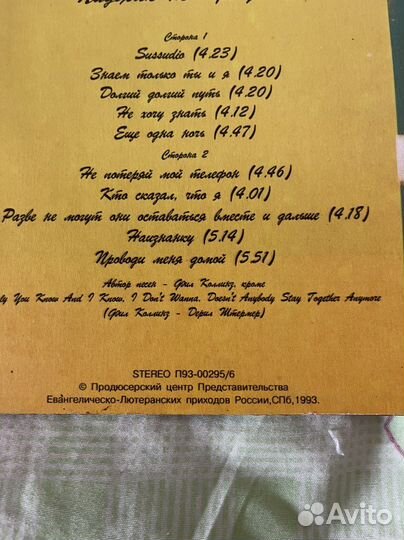 Сторона 1
Sussudio (4.23)
Знаем только ты и я (4.20)
Долгий долгий путь (4.20)
Не хочу знать (4.12)
Еще одна ночь (4.47)
Сторона 2
Не потеряй мой телефон (4.46)
Кто сказал, что я (4.01)
Разве не могут они оставаться вместе и дальше (4.18)
Наизнанку (5.14)
Проводи меня домой (5.51)
Автор песен - Фил Коллинз, кроме
You Know And I Know, I Don't Wanna, Doesn't Anybody Stay Together Anymore
(Фил Коллинз - Дерил Штермер)
STEREO П93-00295/6
© Продюсерский центр Представительства
Евангелическо-Лютеранских приходов России, СПб, 1993.
Avito